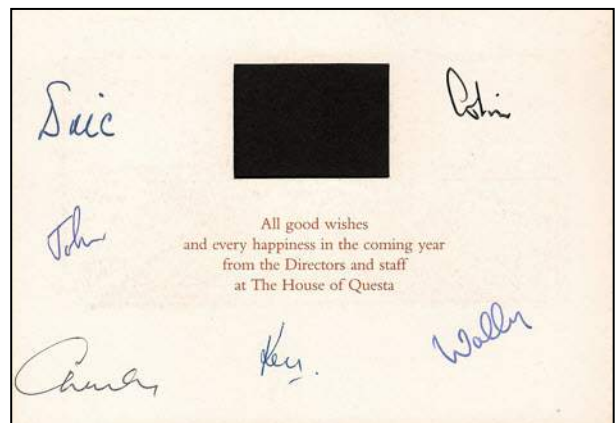 Colin
John
All good wishes
and every happiness in the coming year
from the Directors and staff
at The House of Questa
Wally
Ken.